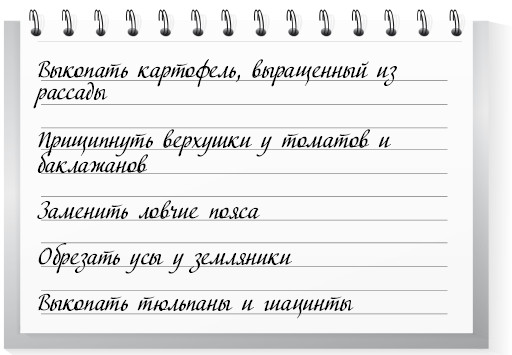 Выкопать картофель, выращенный из
рассады
Прищипнуть верхушки у томатов и
баклажанов
Заменить ловчие пояса
Обрезать усы у земляники
Выкопать тюльпаны и гиацинты